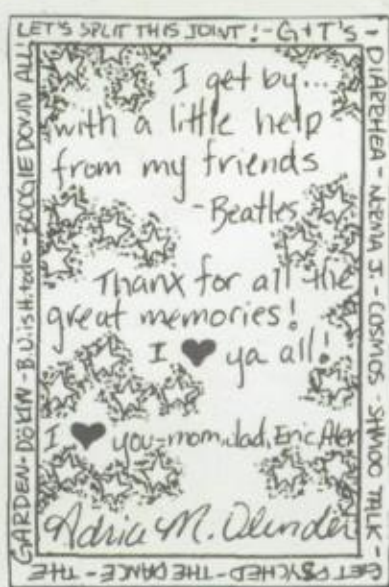 LET'S SPLIT THIS JOINT! - G+T'S -
DIARRHEA - NERMA J. - COSMOS - SHMOO TALK -
GET PSYCHED - THE DANCE - THE
GARDEN - - B.U. is H. todo - BOOGIE DOWN ALL!
I get by...
with a little help
from my friends
-Beatles
Thanx for all the
great memories!
I ♥ ya all!
I ♥ you-mom, dad, Eric, Alex
Adria M. Olender